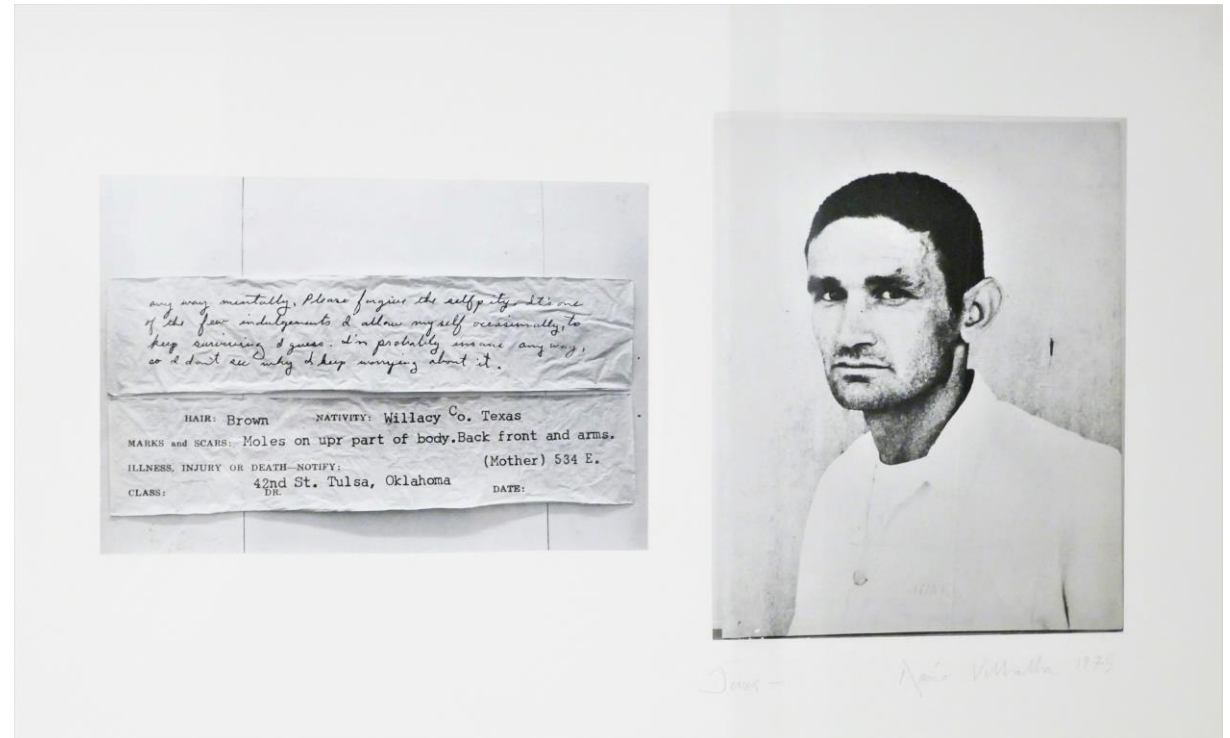 any way mentally. Please forgive the selfpity. It's one
of the few indulgements I allow myself occasionally, to
keep surviving I guess. I'm probably insane any way,
so I don't see why I keep worrying about it.
HAIR: Brown NATIVITY: Willacy Co. Texas
MARKS and SCARS: Moles on upr part of body.Back front and arms.
ILLNESS, INJURY OR DEATH—NOTIFY: (Mother) 534 E.
42nd St. Tulsa, Oklahoma
CLASS: DR. DATE:
Villalba 1975